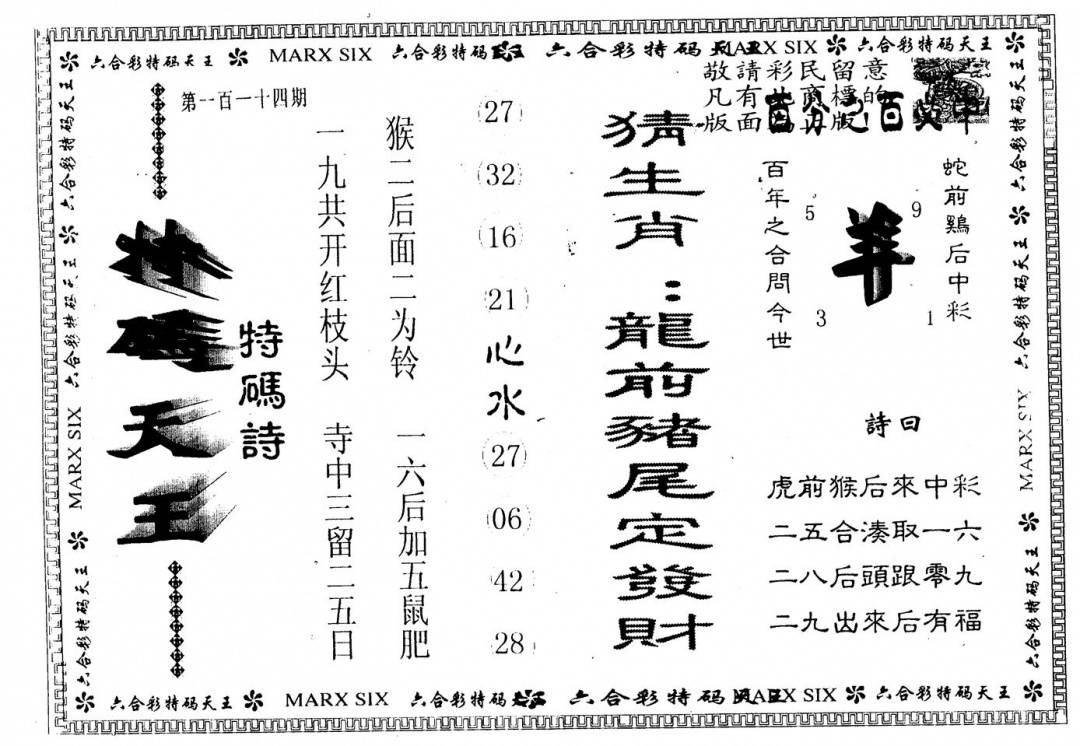 六合彩特码天王 MARX SIX 六合彩特码 六合彩特码 MARX SIX 六合彩特码天王
敬請彩民留意
凡有此商標的
版面 正版
蛇前鷄后中彩
9
羊
5
3
1
百年之合問今世
詩曰
虎前猴后來中彩
二五合湊取一六
二八后頭跟零九
二九出來后有福
猜生肖：龍前豬尾定發財
27
32
16
21
心水
27
06
42
28
猴二后面二为铃 一六后加五鼠肥
一九共开红枝头 寺中三留二五日
特碼詩
第一百一十四期
特碼天王
六合彩特码天王 六合彩特码天王 MARX SIX 六合彩特码天王
六合彩特码天王 六合彩特码天王 MARX SIX 六合彩特码天王
六合彩特码天王 MARX SIX 六合彩特码 六合彩特码 MARX SIX 六合彩特码天王